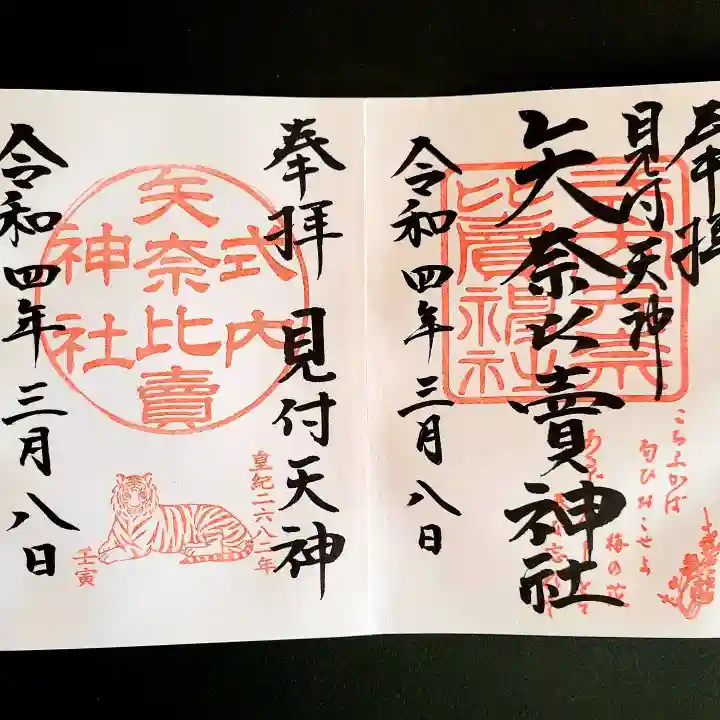 奉拝
見付天神
矢奈比賣神社
令和四年三月八日
こちふかば
匂ひおこせよ
梅の花
奉拝 見付天神
式内
矢奈比賣
神社
皇紀二六八二年
壬寅
令和四年三月八日